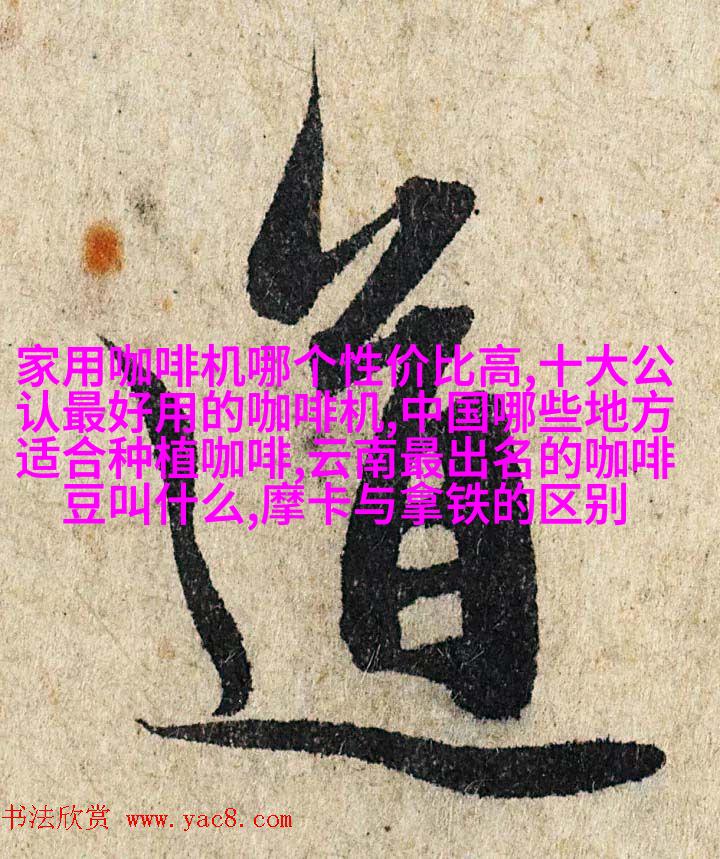 道
家用咖啡机哪个性价比高,十大公
认最好用的咖啡机,中国哪些地方
适合种植咖啡,云南最出名的咖啡
豆叫什么,摩卡与拿铁的区别
书法欣赏 www.yac8.com